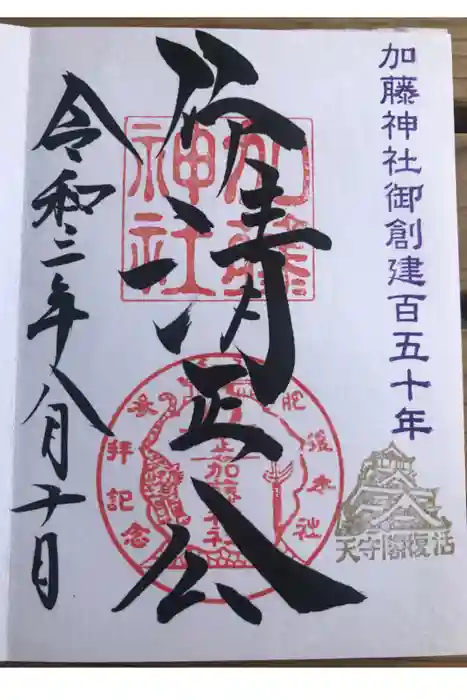 加藤神社御創建百五十年
祈清正公
令和三年八月十日
加藤
神社
肥後本社
参拝記念
加藤神社
天守閣復活